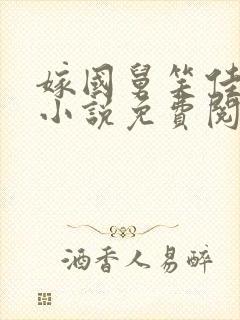 嫁國舅笑佳
小說免費閱
酒香人易醉